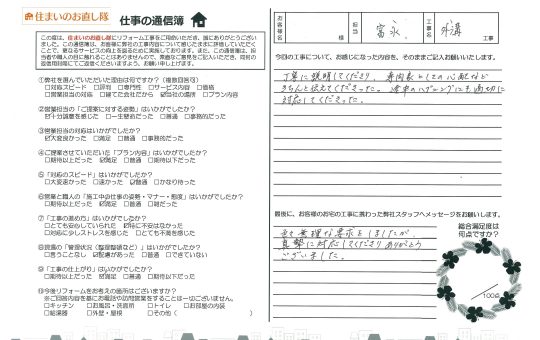 住まいのお直し隊 仕事の通信簿
この度は、住まいのお直し隊にリフォーム工事をご用命いただき、誠にありがとうございました。
①弊社を選んでいただいた理由は何ですか?(複数回答可)
□対応スピード □評判 □専門性 □サービス内容 □価格
□営業担当の対応 □建てた会社だから ☑当社の場所 □プラン内容
②営業担当の「ご提案に対する姿勢」はいかがでしたか?
☑十分誠意を感じた □一生懸命だった □普通 □事務的だった
③営業担当の対応はいかがでしたか?
☑大変良かった □良かった □普通 □事務的だった
④ご提案させていただいた「プラン内容」はいかがでしたか?
□期待以上だった ☑満足 □普通 □期待以下だった
⑤「対応のスピード」はいかがでしたか?
□大変速かった □速かった ☑普通 □かなり待った
⑥営業と職人の「施工中の仕事の姿勢・マナー・態度」はいかがでしたか?
□期待以上だった ☑満足 □普通 □雑だった
⑦「工事の進め方」はいかがでしたか?
□とても安心していられた ☑特に不安はなかった
□対応に少しストレスを感じた □とても不満を感じた
⑧現場の「管理状況(整理整頓など)」はいかがでしたか?
□言うことなし ☑配慮があった □普通 □できていない
⑨「工事の仕上がり」はいかがでしたか?
□期待以上だった ☑満足 □普通 □期待以下だった
⑩今後リフォームをお考えの箇所はございますか?
※ご回答内容を基にお電話や訪問営業をすることは一切ございません。
□キッチン □お風呂・洗面所 □トイレ □お部屋の内装
□給湯器 □外壁・屋根 □その他( )
お客様名 富永 様 工事名 外溝 工事
今回の工事について、お感じになった内容を、そのままご記入お願いします。
丁寧に説明してくださり、専門家としての心配など
きちんと伝えてくださった。済中のハプニングにも適切に
対応してくださった。
最後に、お客様のお宅の工事に携わった弊社スタッフへメッセージをお願いします。
無理な要求をしましたが、
真摯に対応してくださりありがとう
ございました。
総合満足度は
何点ですか?
/100点